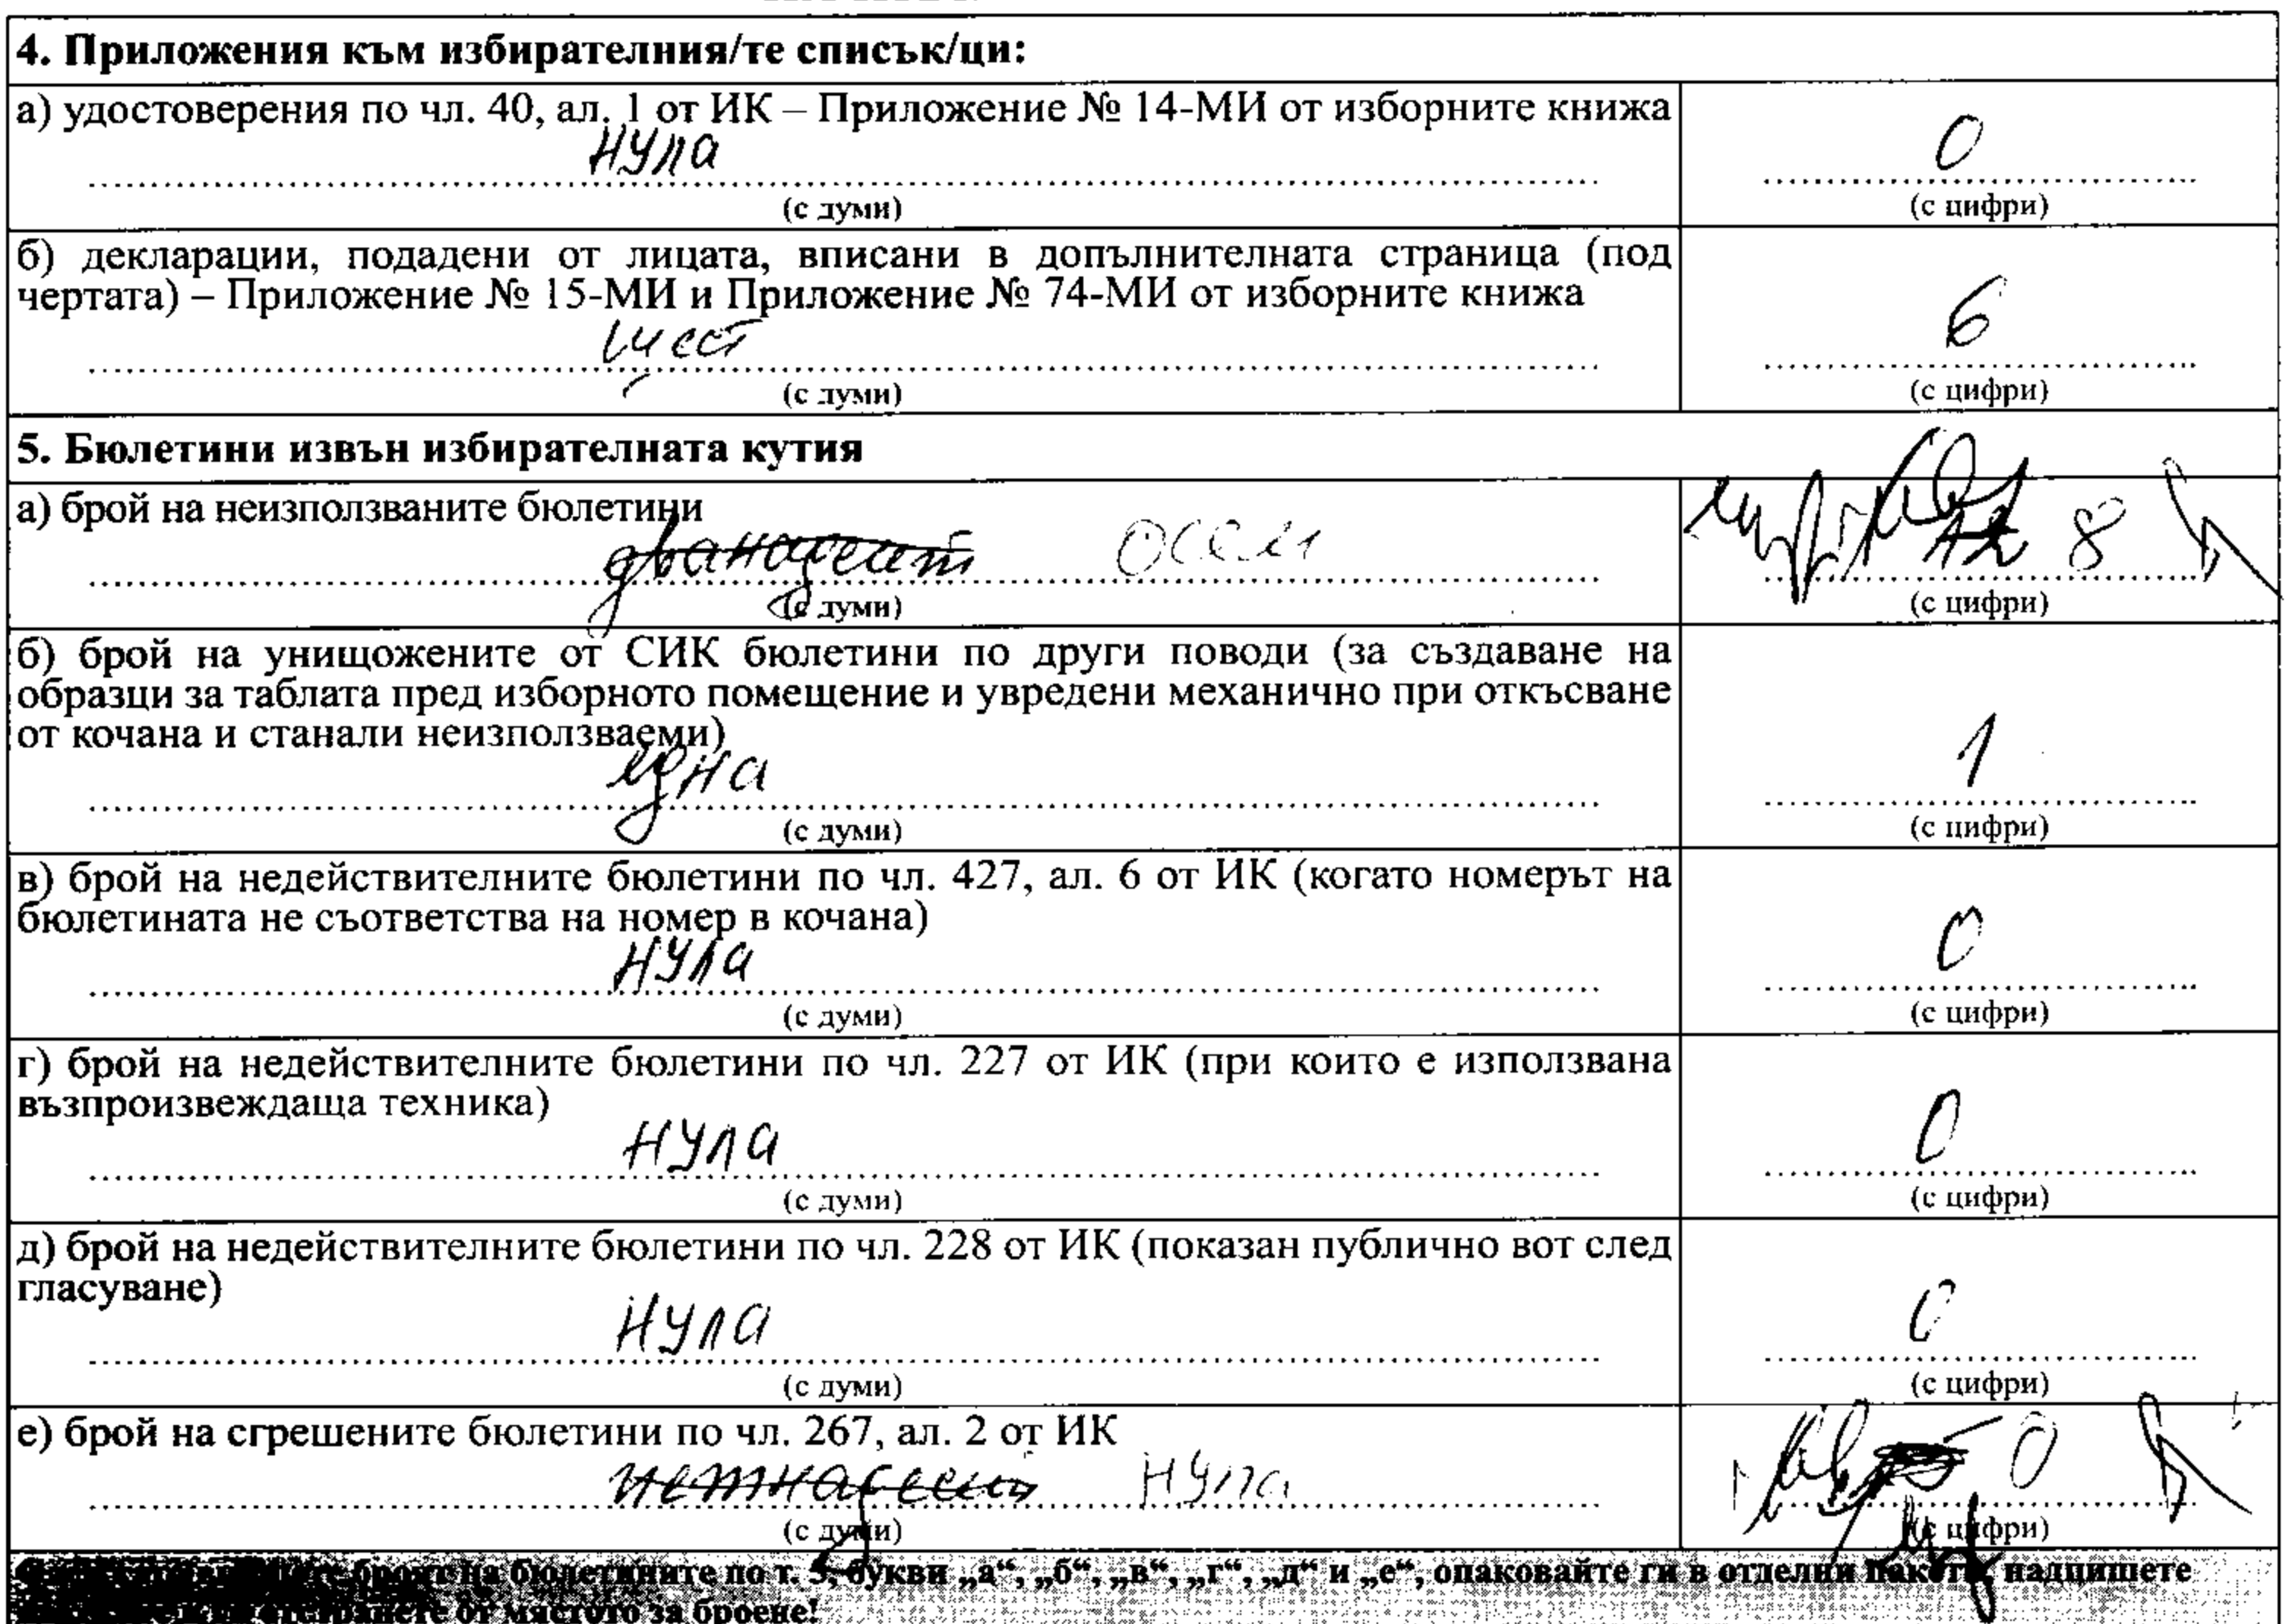 4. Приложения към избирателния/те списък/ци:
а) удостоверения по чл. 40, ал. 1 от ИК – Приложение № 14-МИ от изборните книжа
нула
0
(с думи)
(с цифри)
б) декларации, подадени от лицата, вписани в допълнителната страница (под
чертата) – Приложение № 15-МИ и Приложение № 74-МИ от изборните книжа
шест
6
(с думи)
(с цифри)
5. Бюлетини извън избирателната кутия
а) брой на неизползваните бюлетини
дванадесет осем
12 8
(с думи)
(с цифри)
б) брой на унищожените от СИК бюлетини по други поводи (за създаване на
образци за таблата пред изборното помещение и увредени механично при откъсване
от кочана и станали неизползваеми)
една
1
(с думи)
(с цифри)
в) брой на недействителните бюлетини по чл. 427, ал. 6 от ИК (когато номерът на
бюлетината не съответства на номер в кочана)
нула
0
(с думи)
(с цифри)
г) брой на недействителните бюлетини по чл. 227 от ИК (при които е използвана
възпроизвеждаща техника)
нула
0
(с думи)
(с цифри)
д) брой на недействителните бюлетини по чл. 228 от ИК (показан публично вот след
гласуване)
нула
0
(с думи)
(с цифри)
е) брой на сгрешените бюлетини по чл. 267, ал. 2 от ИК
нула
0
(с думи)
(с цифри)
броят на бюлетините по т. 5, букви „а“, „б“, „в“, „г“, „д“ и „е“, опаковайте ги в отделни пакети, надпишете
отстранете от мястото за броене!